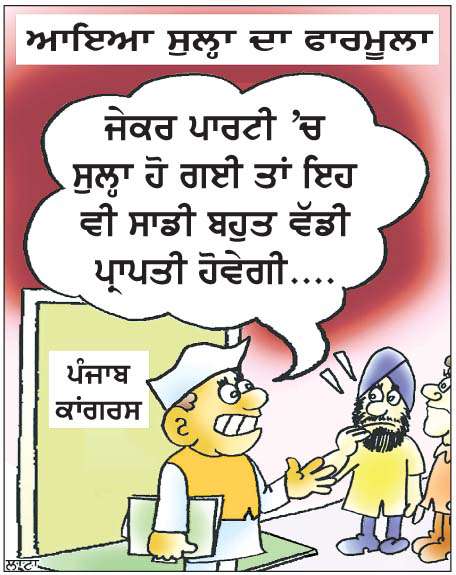 ਆਇਆ ਸੁਲ੍ਹਾ ਦਾ ਫਾਰਮੂਲਾ
ਜੇਕਰ ਪਾਰਟੀ ’ਚ
ਸੁਲ੍ਹਾ ਹੋ ਗਈ ਤਾਂ ਇਹ
ਵੀ ਸਾਡੀ ਬਹੁਤ ਵੱਡੀ
ਪ੍ਰਾਪਤੀ ਹੋਵੇਗੀ....
ਪੰਜਾਬ
ਕਾਂਗਰਸ
ਲਾਟਾ